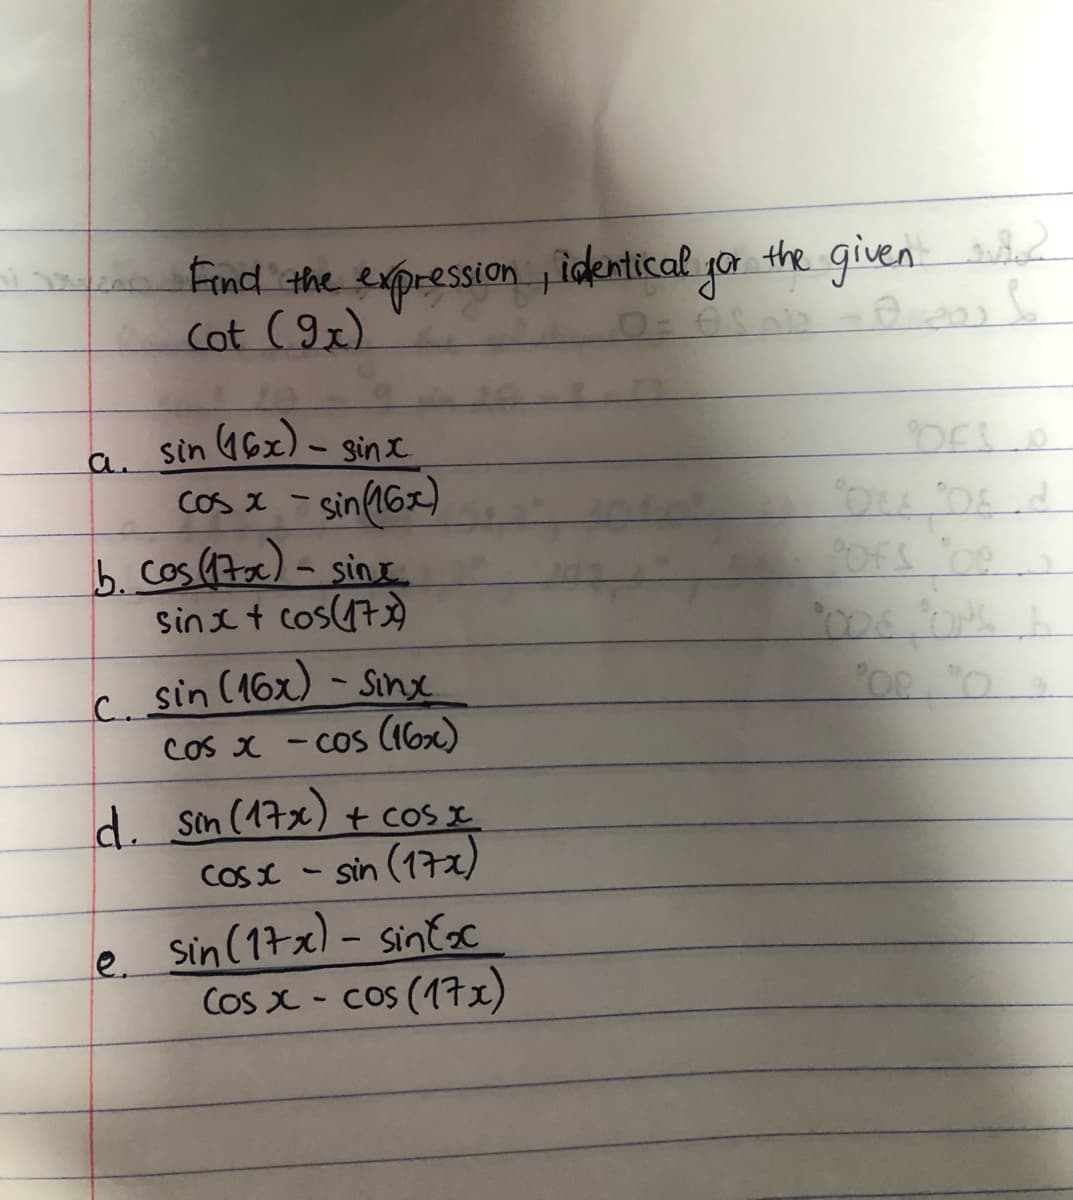 Find the expression, identical for the given
Cot (9x)
a. sin (16x) - sin x
cos x - sin(16x)
b. cos (17x) - sin x
sin x + cos(17x)
c. sin (16x) - sin x
cos x - cos (16x)
d. sin (17x) + cos x
cos x - sin (17x)
e. sin (17x) - sin x
cos x - cos (17x)